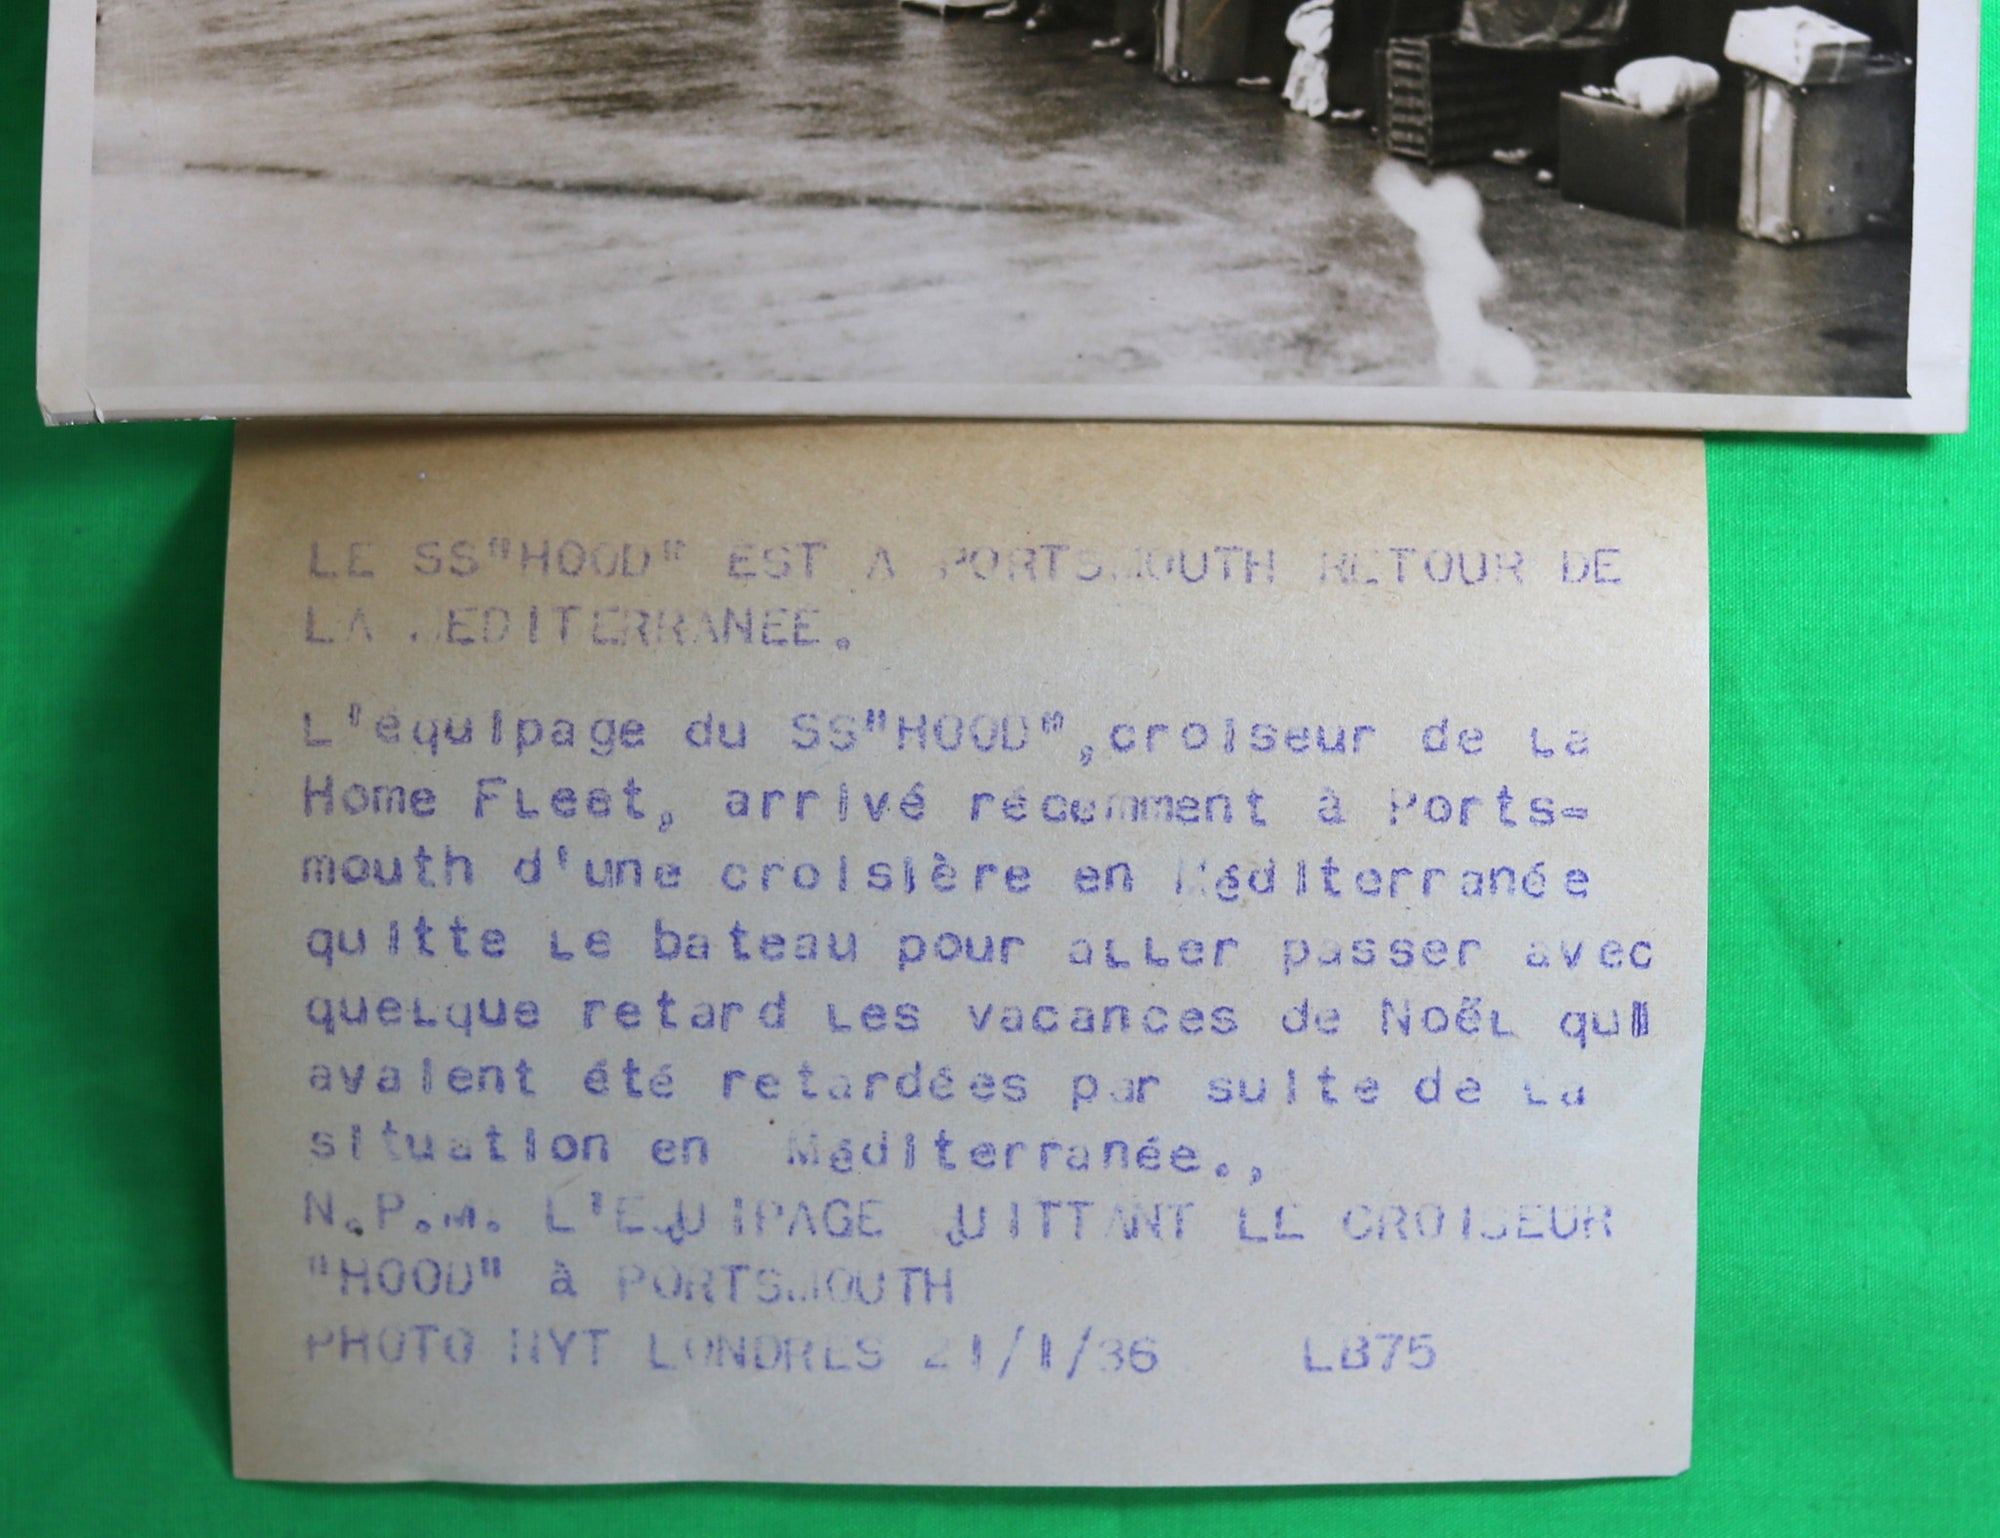 LE SS"HOOD" EST A PORTSMOUTH RETOUR DE
LA MEDITERRANEE.
L'équipage du SS"HOOD",croiseur de la
Home Fleet, arrivé récemment à Ports=
mouth d'une croisière en Méditerranée
quitte le bateau pour aller passer avec
quelque retard les vacances de Noël qui
avaient été retardées par suite de la
situation en Méditerranée.,
N.P.M. L'EQUIPAGE QUITTANT LE CROISEUR
"HOOD" à PORTSMOUTH
PHOTO NYT LONDRES 21/1/36 LB75